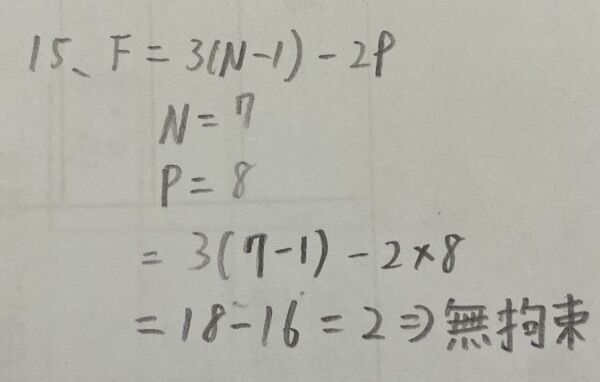 15、F = 3(N-1) - 2P
N = 7
P = 8
= 3(7-1) - 2×8
= 18-16 = 2 ⇒ 無拘束